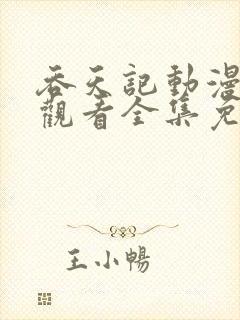 吞天記動漫
觀看全集免
王小暢